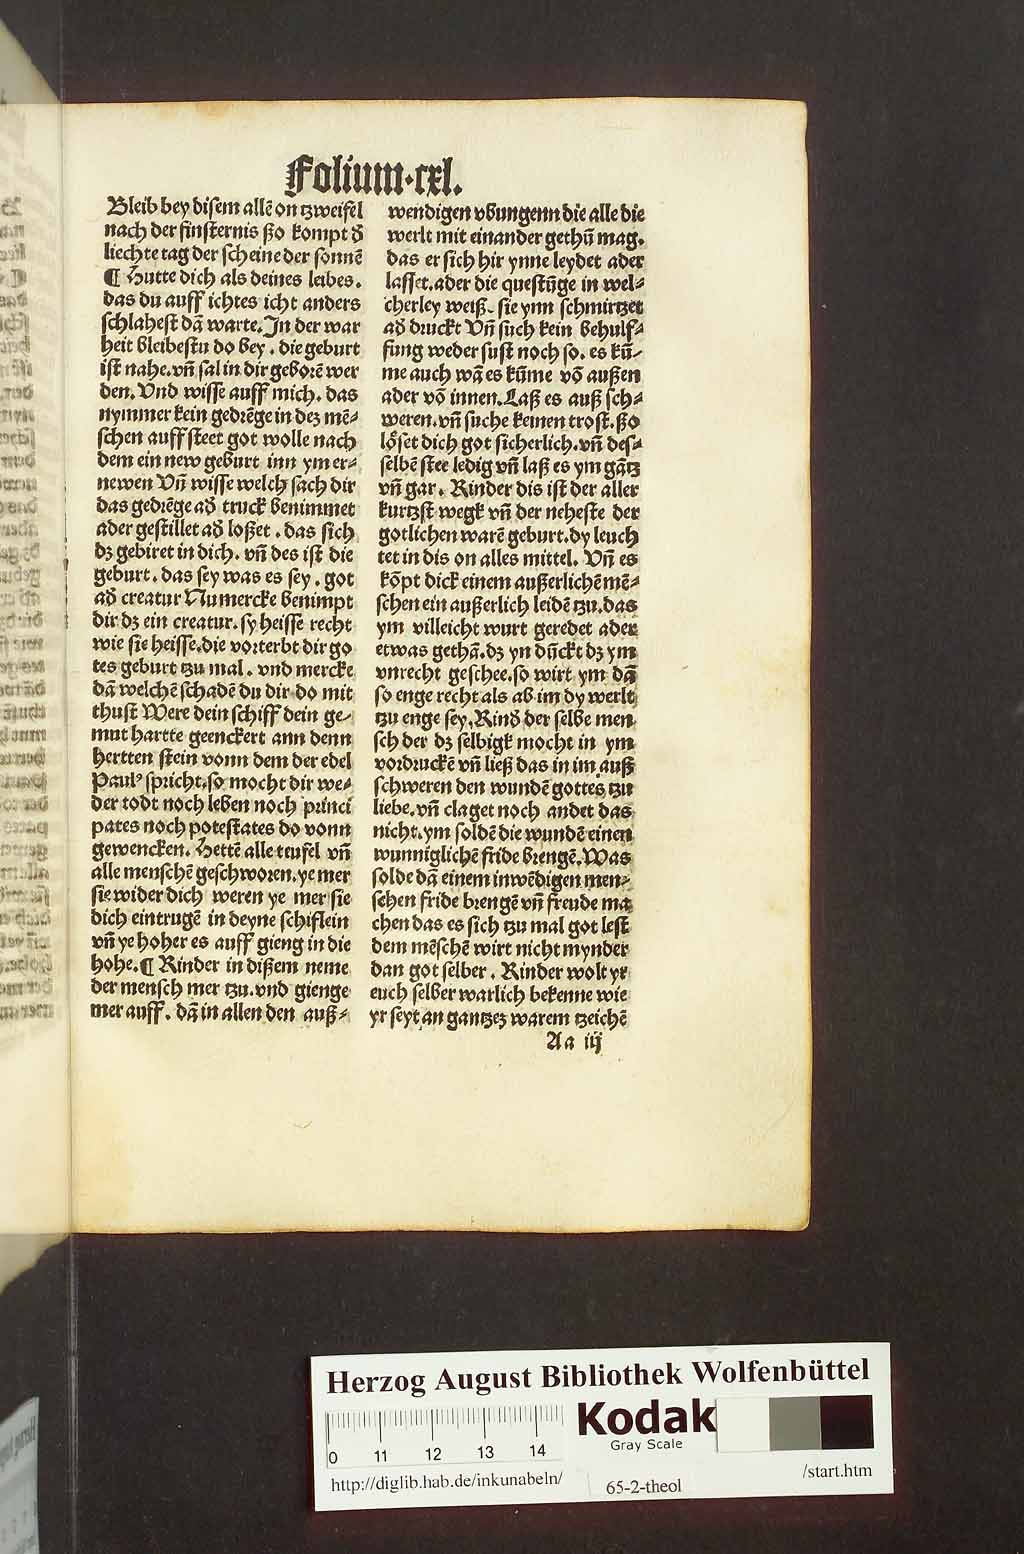 Folium·cxl.
Bleib bey disem allē on tzweifel
nach der finsternis ßo kompt d̕
liechte tag der scheine der sonnē
¶ Hutte dich als deines leibes.
das du auff ichtes icht anders
schlahest dā warte. In der war
heit bleibestu do bey. die geburt
ist nahe. vñ sal in dir geborē wer
den. Vnd wisse auff mich. das
nymmer kein gedrēge in dez mē⸗
schen auff steet got wolle nach
dem ein new geburt inn ym er⸗
newen Vñ wisse welch sach dir
das gedrēge ad̕ truck benimmet
ader gestillet ad̕ loßet. das sich
dz gebiret in dich. vñ des ist die
geburt. das sey was es sey. got
ad̕ creatur Nu mercke benimpt
dir dz ein creatur. sy heisse recht
wie sie heisse. die vorterbt dir go
tes geburt tzu mal. vnd mercke
dā welchē schadē du dir do mit
thust Were dein schiff dein ge⸗
mut hartte geenckert ann denn
hertten stein vonn dem der edel
Paulꝰ spricht. so mocht dir we⸗
der todt noch leben noch princi
pates noch potestates do vonn
gewencken. Hettē alle teufel vñ
alle menschē geschworen. ye mer
sie wider dich weren ye mer sie
dich eintrugē in deyne schiflein
vñ ye hoher es auff gieng in die
hohe. ¶ Kinder in dißem neme
der mensch mer tzu. vnd gienge
mer auff. dā in allen den auß⸗
wendigen vbungenn die alle die
werlt mit einander gethū mag.
das er sich hir ynne leydet ader
lasset. ader die questūge in wel⸗
cherley weiß. sie ynn schmirtzet
ad̕ druckt Vñ such kein behulf⸗
fung weder sust noch so. es kū⸗
me auch wā es kūme võ außen
ader võ innen. Laß es auß sch⸗
weren. vñ suche keinen trost. ßo
löset dich got sicherlich. vñ des⸗
selbē stee ledig vñ laß es ym gātz
vñ gar. Kinder dis ist der aller
kurtzst wegk vñ der neheste der
gotlichen warē geburt. dy leuch
tet in dis on alles mittel. Vñ es
kõpt dick einem außerlichē mē⸗
schen ein außerlich leidē tzu. das
ym villeicht wurt geredet ader
etwas gethā. dz yn dūckt dz ym
vnrecht geschee. so wirt ym dā
so enge recht als ab im dy werlt
tzu enge sey. Kind̕ der selbe men
sch der dz selbigk mocht in ym
vordruckē vñ ließ das in im auß
schweren den wundē gottes tzu
liebe. vñ claget noch andet das
nicht. ym soldē die wundē einen
wunniglichē fride brengē. Was
solde dā einem inwēdigen men⸗
schen fride brengē vñ freude ma
chen das es sich tzu mal got lest
dem mēschē wirt nicht mynder
dan got selber. Kinder wolt yr
euch selber warlich bekenne wie
yr seyt an gantzez warem tzeichē
Aa iij
Herzog August Bibliothek Wolfenbüttel
Kodak
Gray Scale
0 11 12 13 14
http://diglib.hab.de/inkunabeln/
65-2-theol
/start.htm